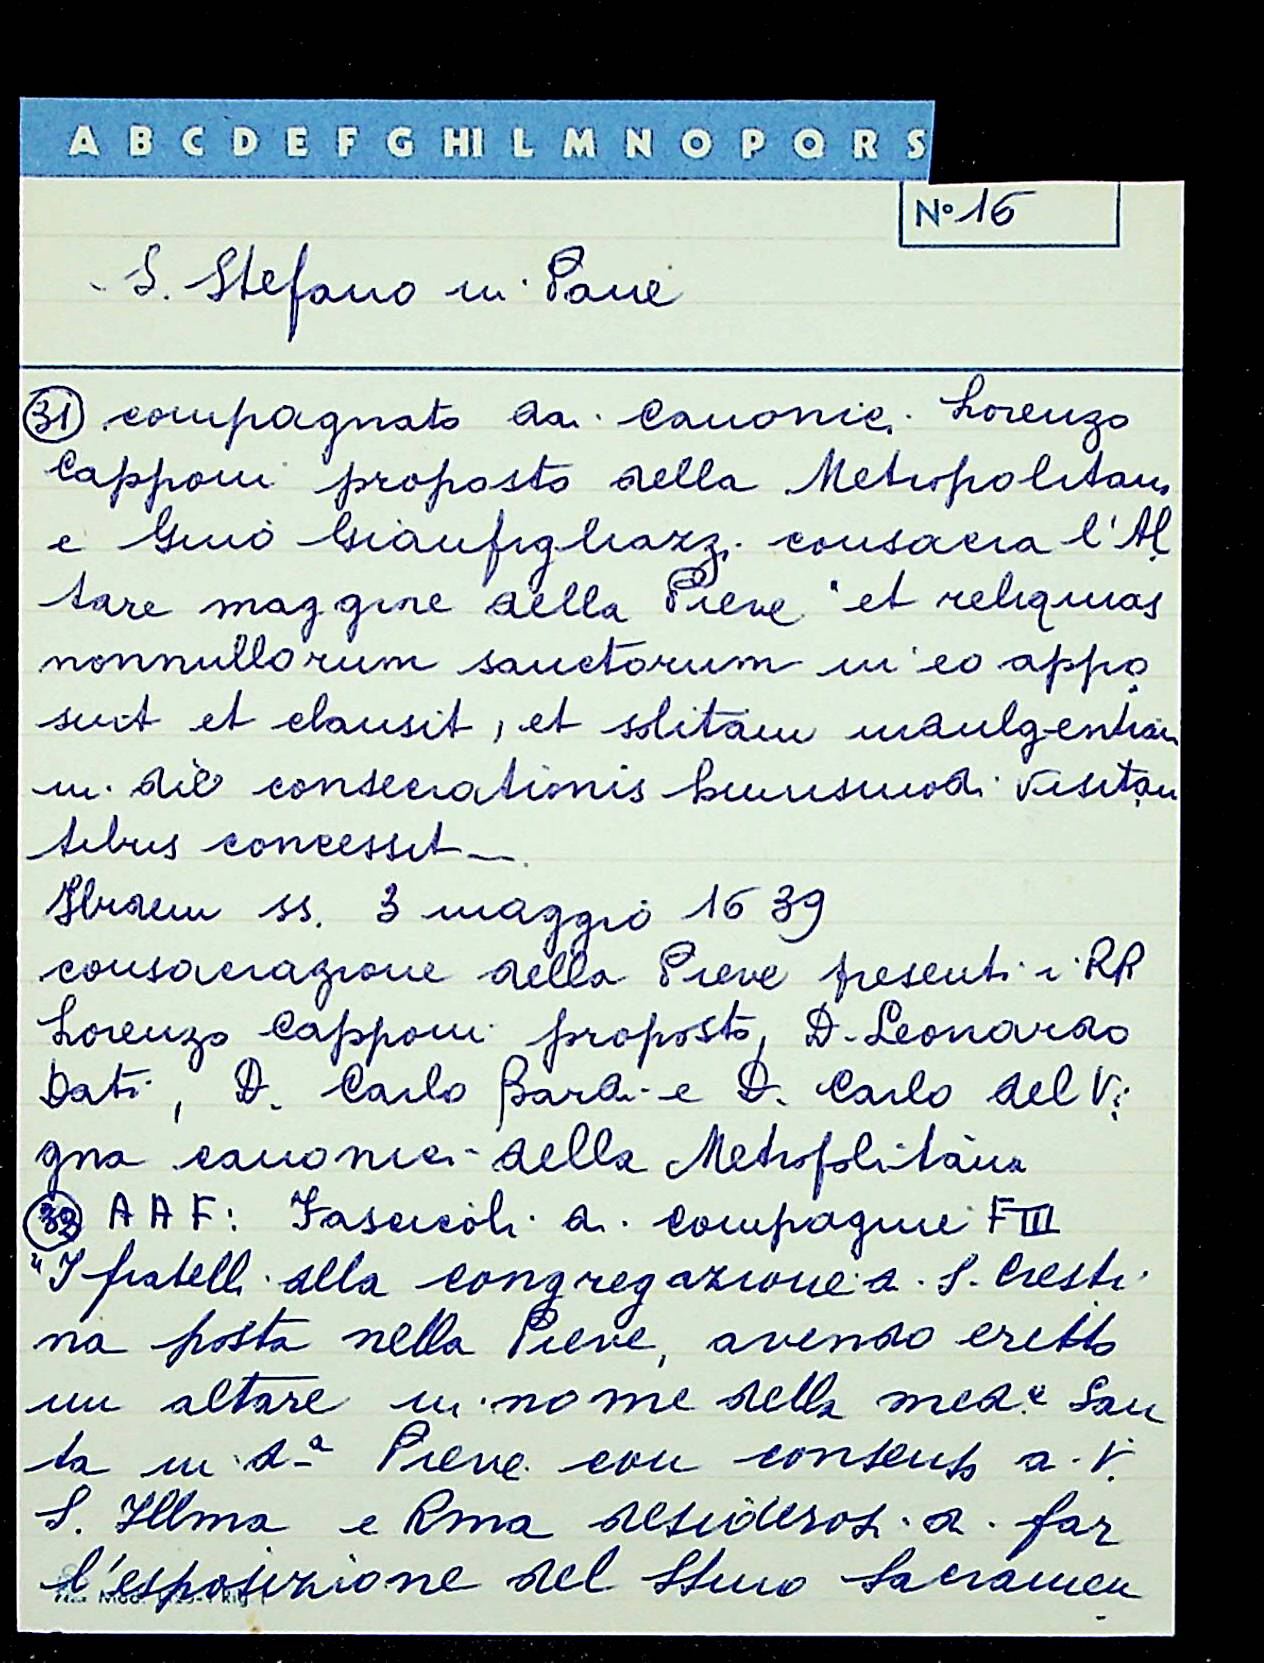 A B C D E F G HI L M N O P Q R S
Nº 16
S. Stefano in Pane
31 compagnato dai canonici Lorenzo
Capponi proposto della Metropolitana
e Gino Gianfigliazzi consacra l'Al
tare maggiore della Pieve "et reliquias
nonnullorum sanctorum in eo appo
suit et clausit, et solitam indulgentiam
in die consecrationis huiusmodi visitan
tibus concessit
Ibidem ss. 3 maggio 1639
consacrazione della Pieve presenti i RR
Lorenzo Capponi proposto, D. Leonardo
Dati, D. Carlo Bardi e D. Carlo del Vi
gna canonici della Metropolitana
32 A A F: Fascicoli di compagnie F III
"I fratelli della congregazione di S. Cresti
na posta nella Pieve, avendo eretto
un altare in nome della med.ª San
ta in d.ª Pieve con consenso di V.
S. Illma e Rma desiderosi di far
l'esposizione del SSmo Sacramen